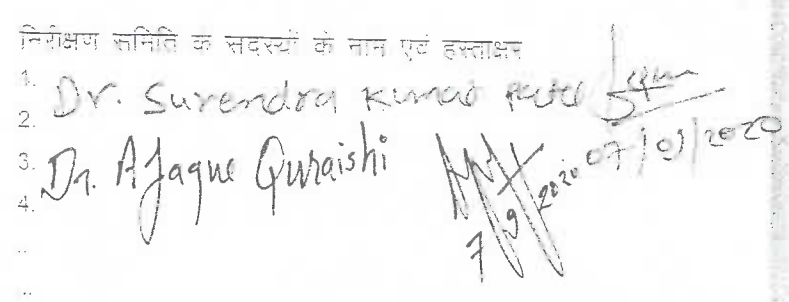 निरीक्षण समिति के सदस्यों के नाम एवं हस्ताक्षर
1. Dr. Surendra Kumar Patel
2. 07/09/2020
3. Dr. Afaque Quraishi
4. 7/9/2020